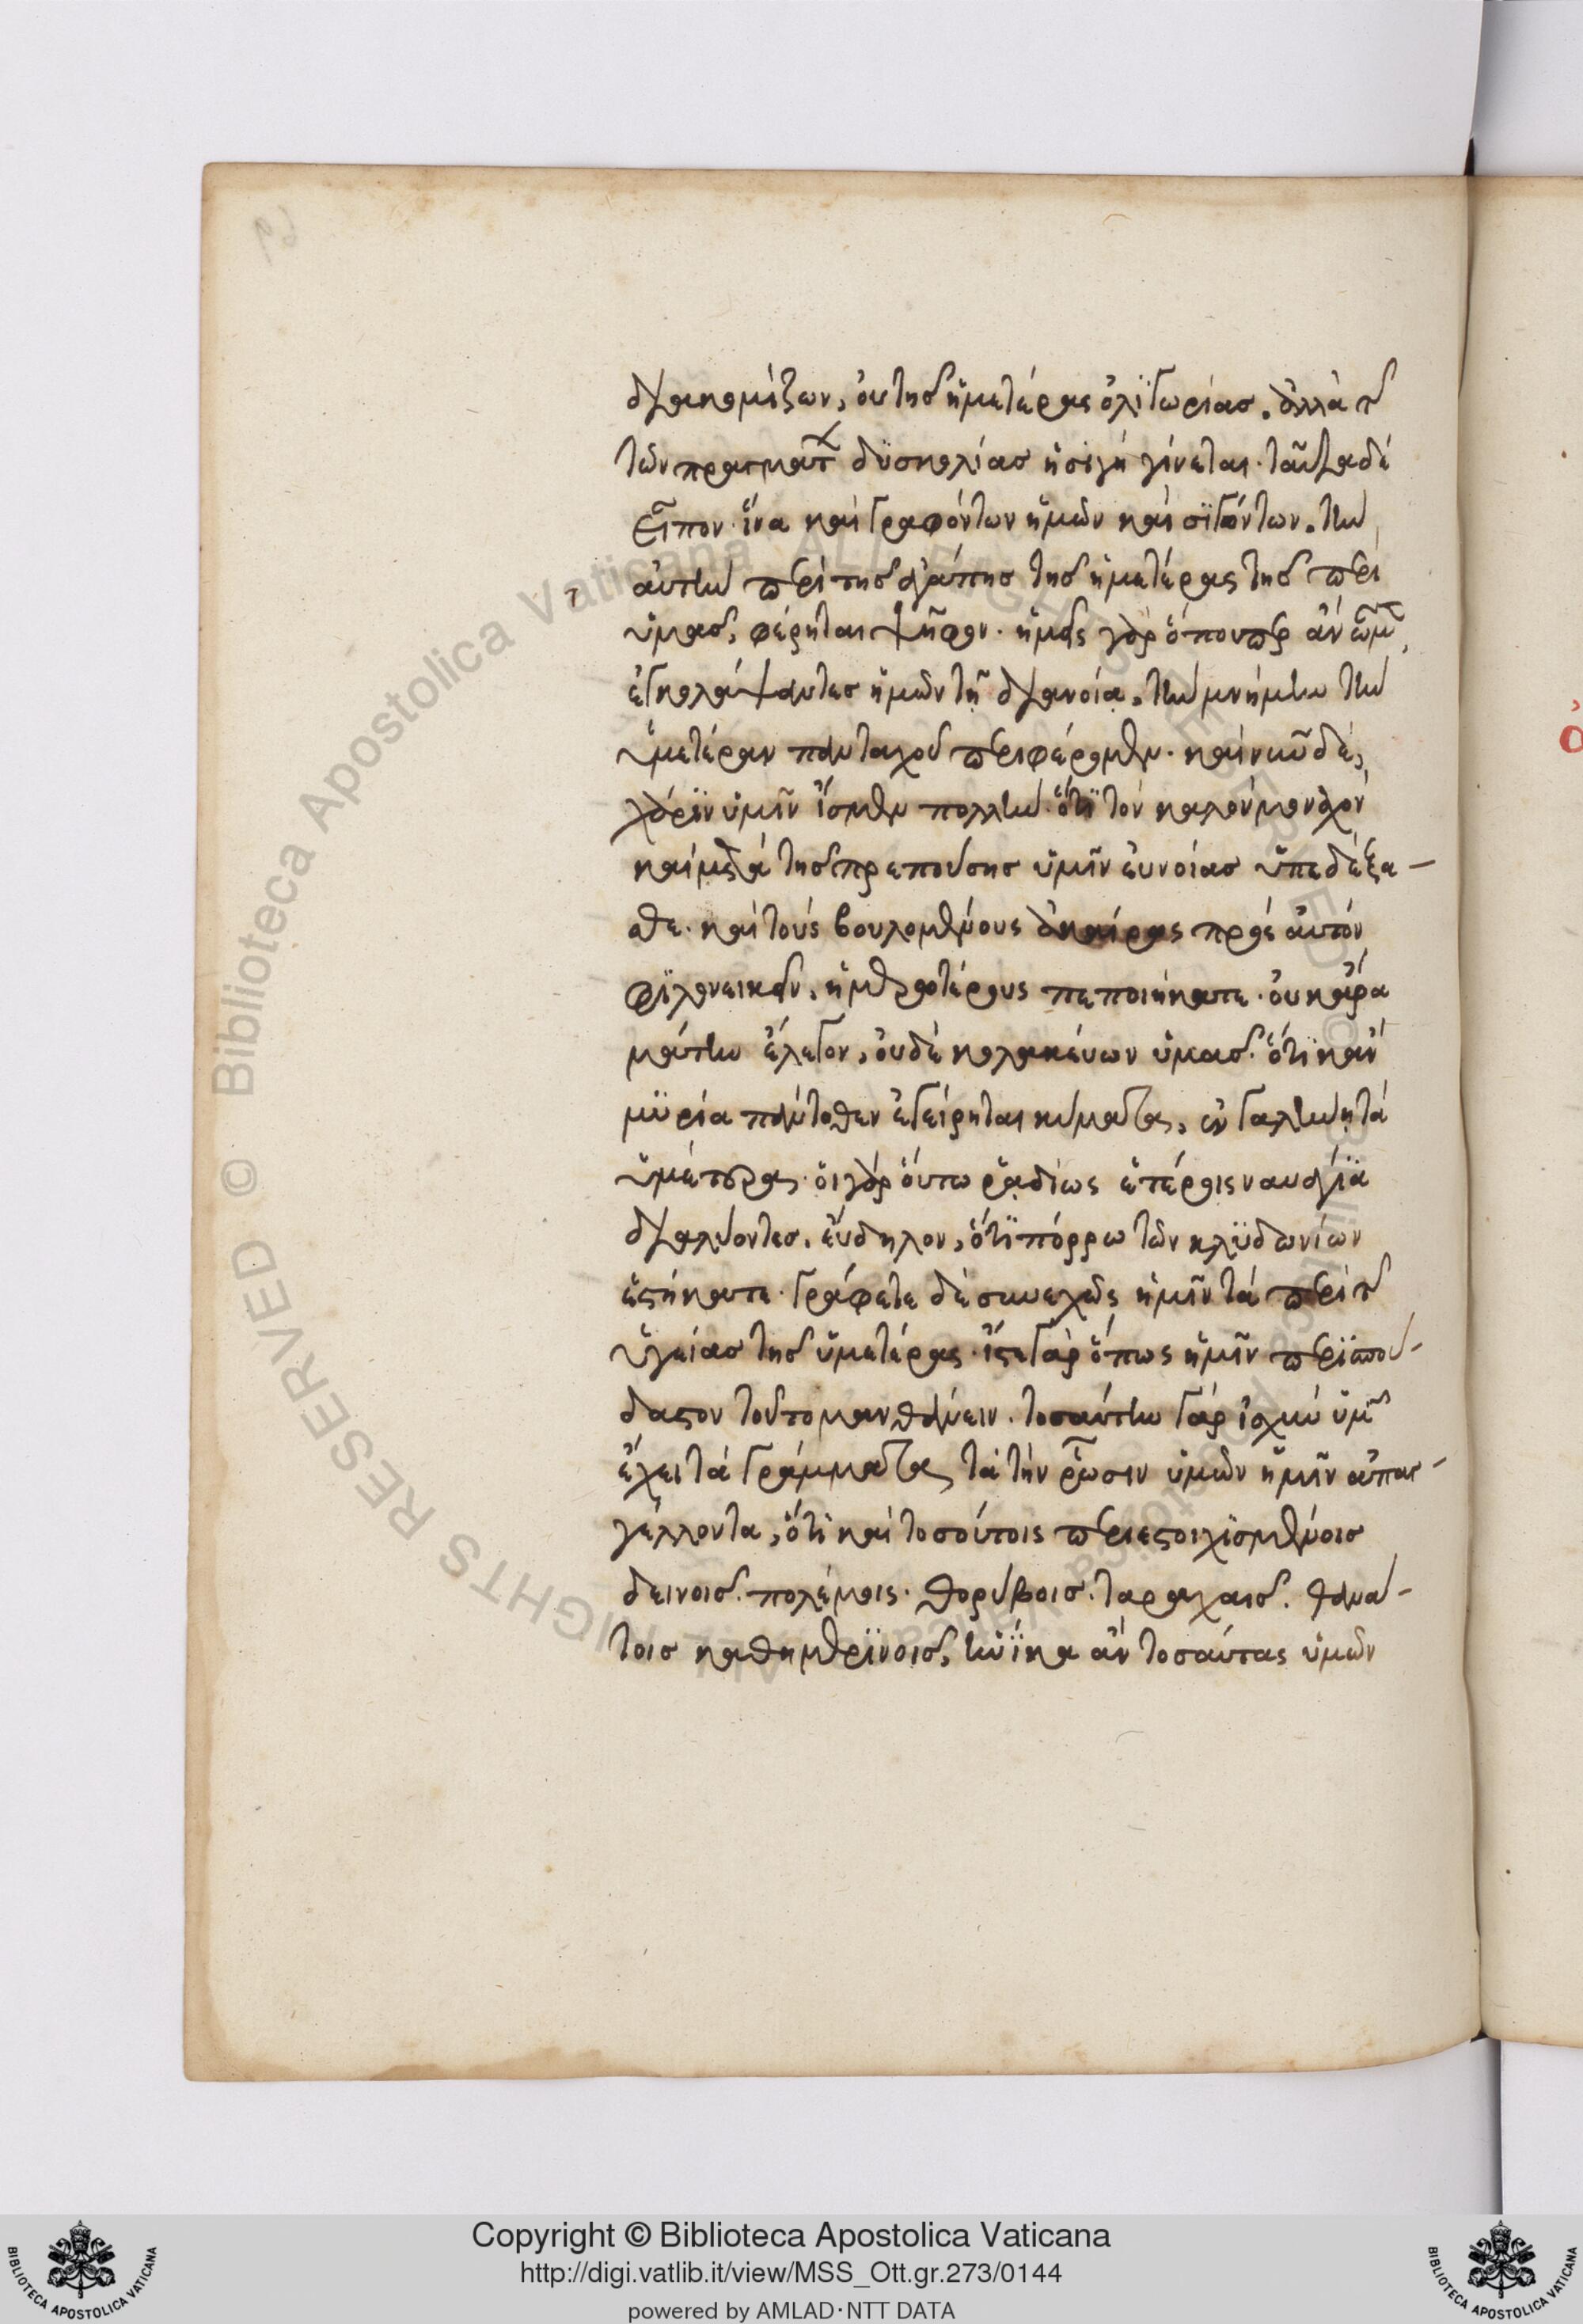 διακομίζων, οὐ τῆς ἡμετέρας ὀλιγωρίας. ἀλλὰ τῆς
τῶν πραγμάτων δυσκολίας ἡ σιγὴ γίνεται· ταῦτα δὲ
εἶπον· ἵνα καὶ γραφόντων ἡμῶν καὶ σιγώντων. τὴν
αὐτὴν περὶ τῆς ἀγάπης τῆς ἡμετέρας τῆς περὶ
ὑμᾶς, φέρηται ψῆφον· ἡμεῖς γὰρ ὅπουπερ ἂν ὦμεν,
ἐγκολάψαντες ἡμῶν τῇ διανοίᾳ, τὴν μνήμην τὴν
ὑμετέραν πανταχοῦ περιφέρομεν· καὶ νῦν δὲ,
χάριν ὑμῖν ἴσμεν πολλὴν· ὅτι τὸν καλὸν μοναχὸν
καὶ μετὰ τῆς πρεπούσης ὑμῖν εὐνοίας ὑπεδέξα-
σθε· καὶ τοὺς βουλομένους ἀκαίρως πρὸς αὐτὸν
φιλονεικεῖν, ἡμερωτέρους πεποιήκατε· οὐκ ἄρα
μάτην ἔλεγον, οὐδὲ κολακεύων ὑμᾶς. ὅτι κἂν
μυρία πάντοθεν ἐγείρηται κύματα, ἐν γαλήνῃ τὰ
ὑμέτερα· οἱ γὰρ οὕτω ῥαδίως ἑτέροις ναυάγια
διαλύοντες, εὔδηλον, ὅτι πόρρω τῶν κλυδωνίων
ἑστήκατε· γράφετε δὲ συνεχῶς ἡμῖν τὰ περὶ τῆς
ὑγείας τῆς ὑμετέρας· ἴστε γὰρ ὅπως ἡμῖν περισπού-
δαστον τοῦτο μανθάνειν. τοσαύτην γὰρ ἰσχὺν ὑμῶν
ἔχει τὰ γράμματα, τὰ τὴν ῥῶσιν ὑμῶν ἡμῖν ἀπαγ-
γέλλοντα, ὅτι καὶ τοσούτοις περιεστοιχισμένοις
δεινοῖς. πολέμοις. θορύβοις. ταραχαῖς. θανά-
τοις καθημερινοῖς, ἡνίκα ἂν τοσαύτας ὑμῶν
Copyright © Biblioteca Apostolica Vaticana
http://digi.vatlib.it/view/MSS_Ott.gr.273/0144
powered by AMLAD·NTT DATA